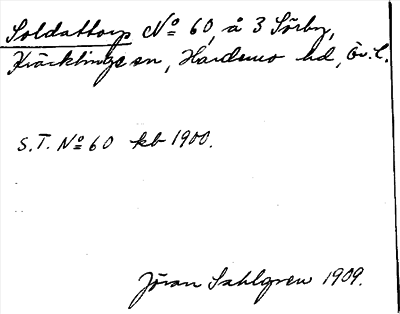 Soldattorp No 60, å 3 Sörby,
Kräcklinge sn, Hardemo hd, Ör. l.
S.T. No 60 kb 1900.
Jöran Sahlgren 1909.